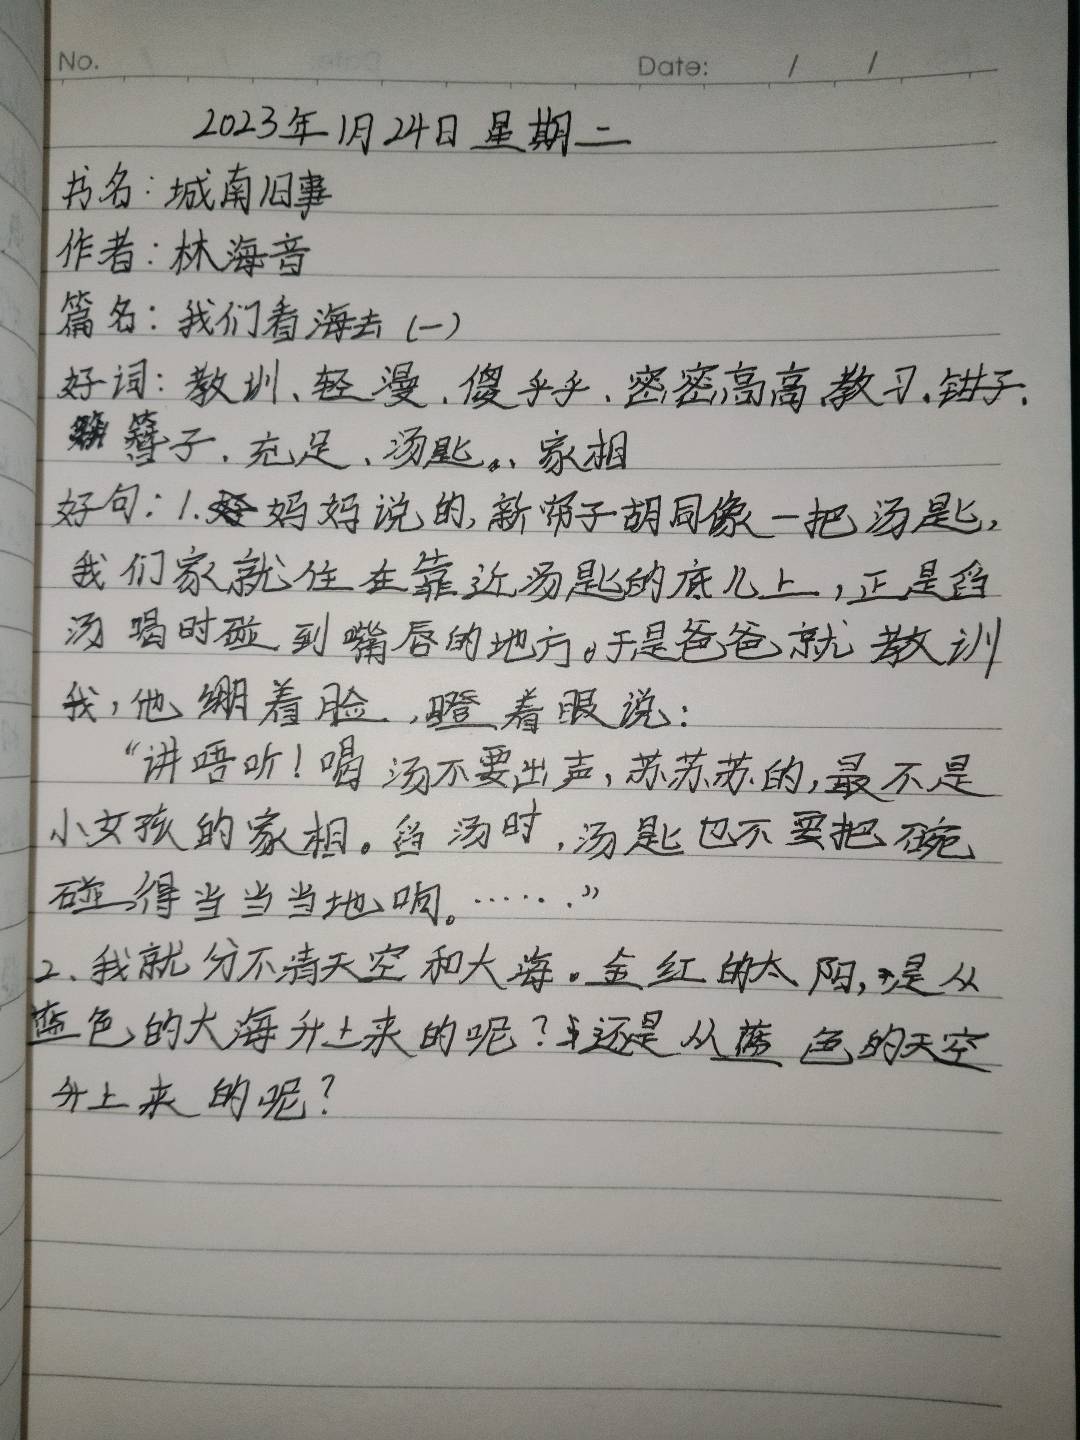 No. Date: / /
2023年1月24日 星期二
书名：城南旧事
作者：林海音
篇名：我们看海去（一）
好词：教训、轻漫、傻乎乎、密密高高、教习、钳子、
簪子、充足、汤匙、家相
好句：1.妈妈说的,新帘子胡同像一把汤匙,
我们家就住在靠近汤匙的底儿上,正是舀
汤喝时碰到嘴唇的地方。于是爸爸就教训
我,他绷着脸,瞪着眼说：
“讲唔听！喝汤不要出声,苏苏苏的,最不是
小女孩的家相。舀汤时,汤匙也不要把碗
碰得当当当地响。……”
2、我就分不清天空和大海。金红的太阳,是从
蓝色的大海升上来的呢？还是从蓝色的天空
升上来的呢？